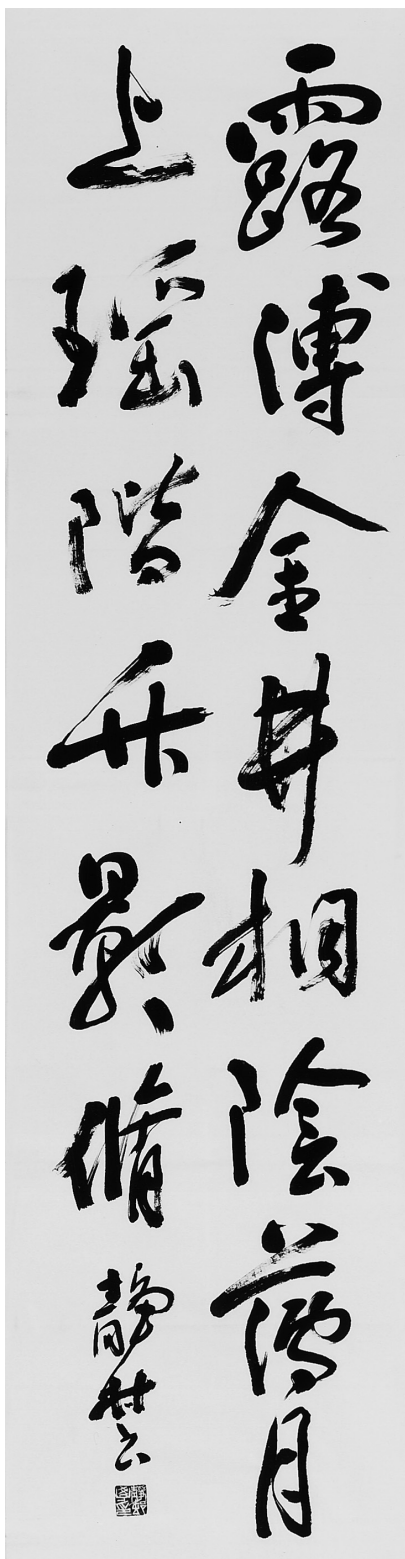 露溥金井桐陰薄月
上瑶階竹影脩
静村書